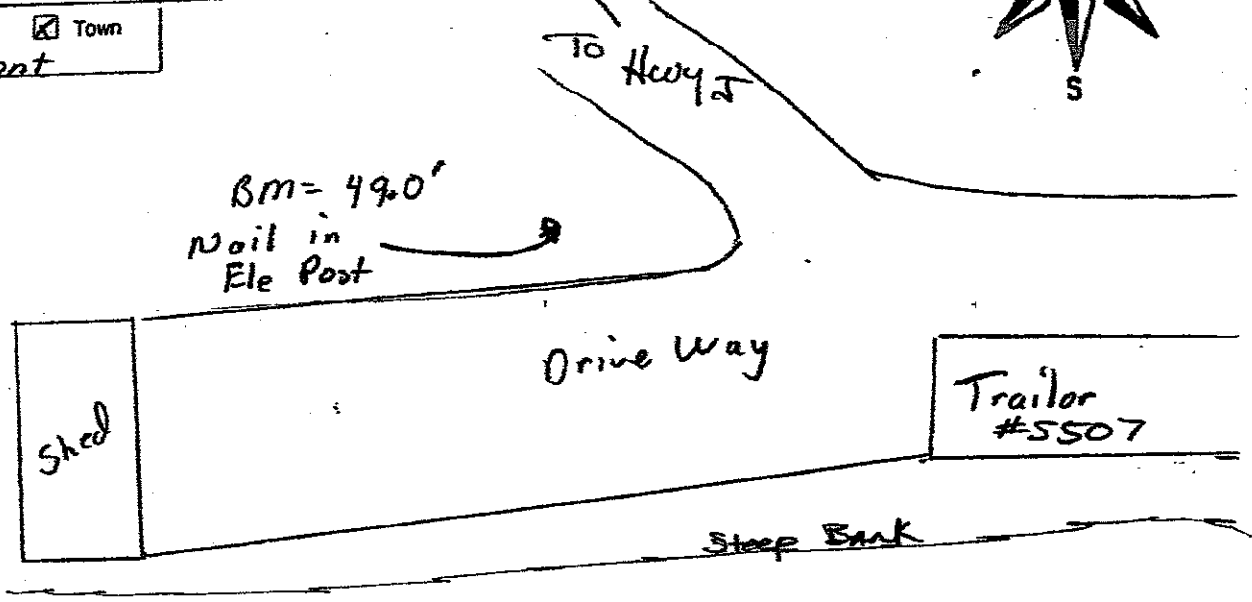 Town
S
To
Hwy J
BM= 49.0'
Nail in
Ele Post
Drive Way
Shed
Trailor
#5507
Steep Bank